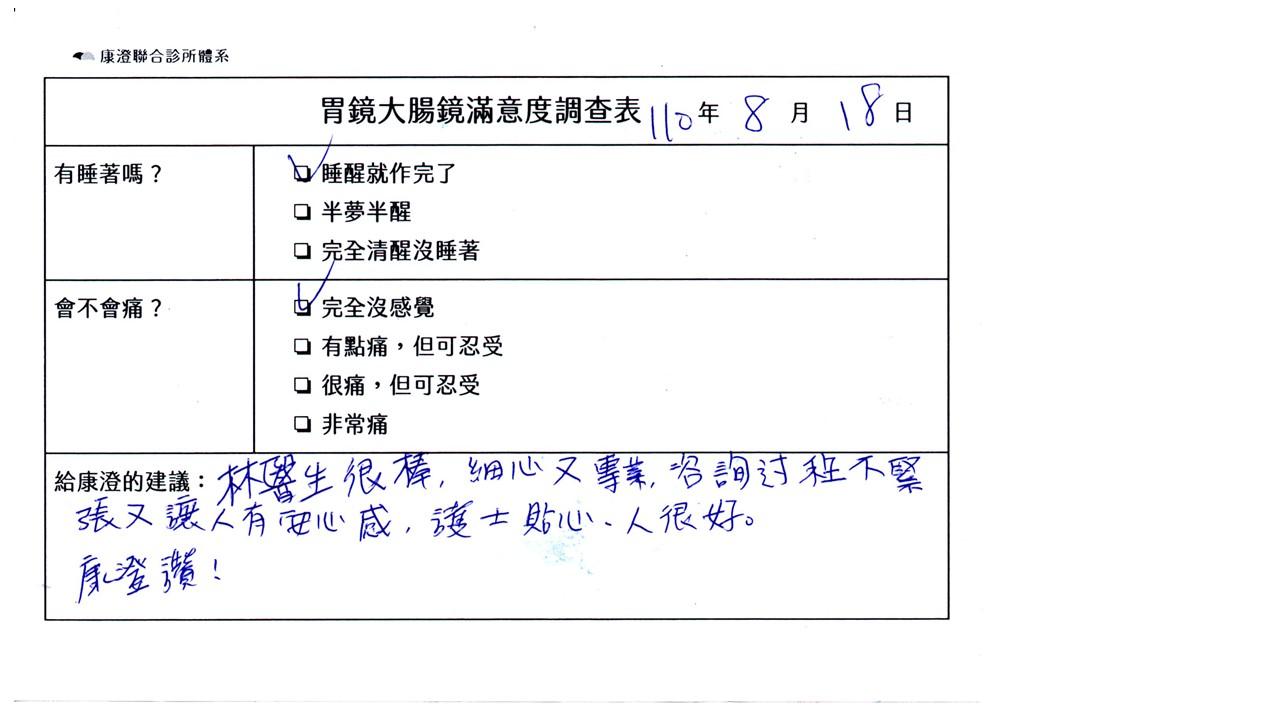 康澄聯合診所體系
胃鏡大腸鏡滿意度調查表 110年 8月 18日
有睡著嗎？
睡醒就作完了
半夢半醒
完全清醒沒睡著
會不會痛？
完全沒感覺
有點痛，但可忍受
很痛，但可忍受
非常痛
給康澄的建議：林醫生很棒，細心又專業，咨詢过程不緊
張又讓人有安心感，護士貼心、人很好。
康澄讚！